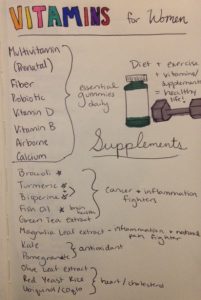 VITAMINS for Women
Multivitamin
(Prenatal)
Fiber
Probiotic
Vitamin D
Vitamin B
Airborne
Calcium
essential
gummies
daily
Diet + exercise
+ vitamins/
supplements
= healthy
life!
Supplements
Broccoli
Turmeric
Bioperine
Fish Oil
brain
health
Green Tea Extract
cancer + inflammation
fighters
Magnolia Leaf extract - inflammation + natural
pain fighter
Kale
Pomegranate
antioxidant
Olive Leaf extract
Red Yeast Rice
Ubiquinol/CoQ10
heart/cholesterol